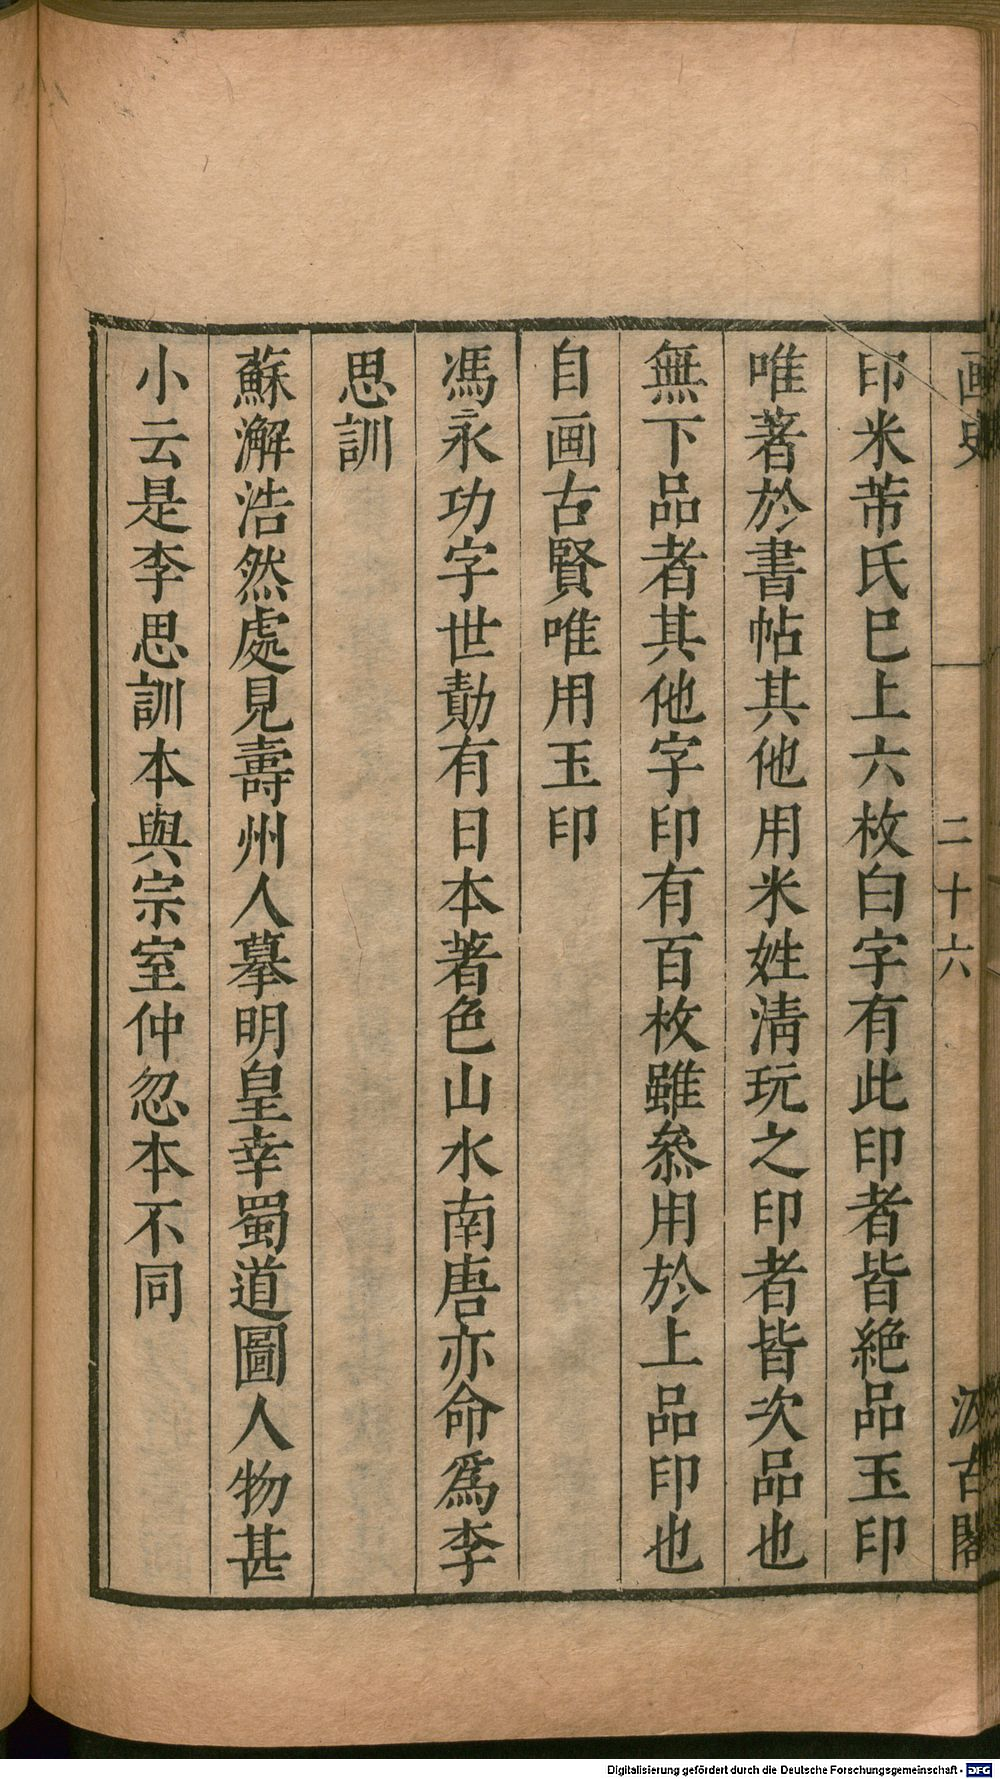 画史
二十六
汲古閣
印米芾氏巳上六枚白字有此印者皆絶品玉印
唯著於書帖其他用米姓淸玩之印者皆次品也
無下品者其他字印有百枚雖叅用於上品印也
自画古賢唯用玉印
馮永功字世勣有日本著色山水南唐亦命爲李
思訓
蘇澥浩然處見壽州人摹明皇幸蜀道圖人物甚
小云是李思訓本與宗室仲忽本不同
Digitalisierung gefördert durch die Deutsche Forschungsgemeinschaft - DFG